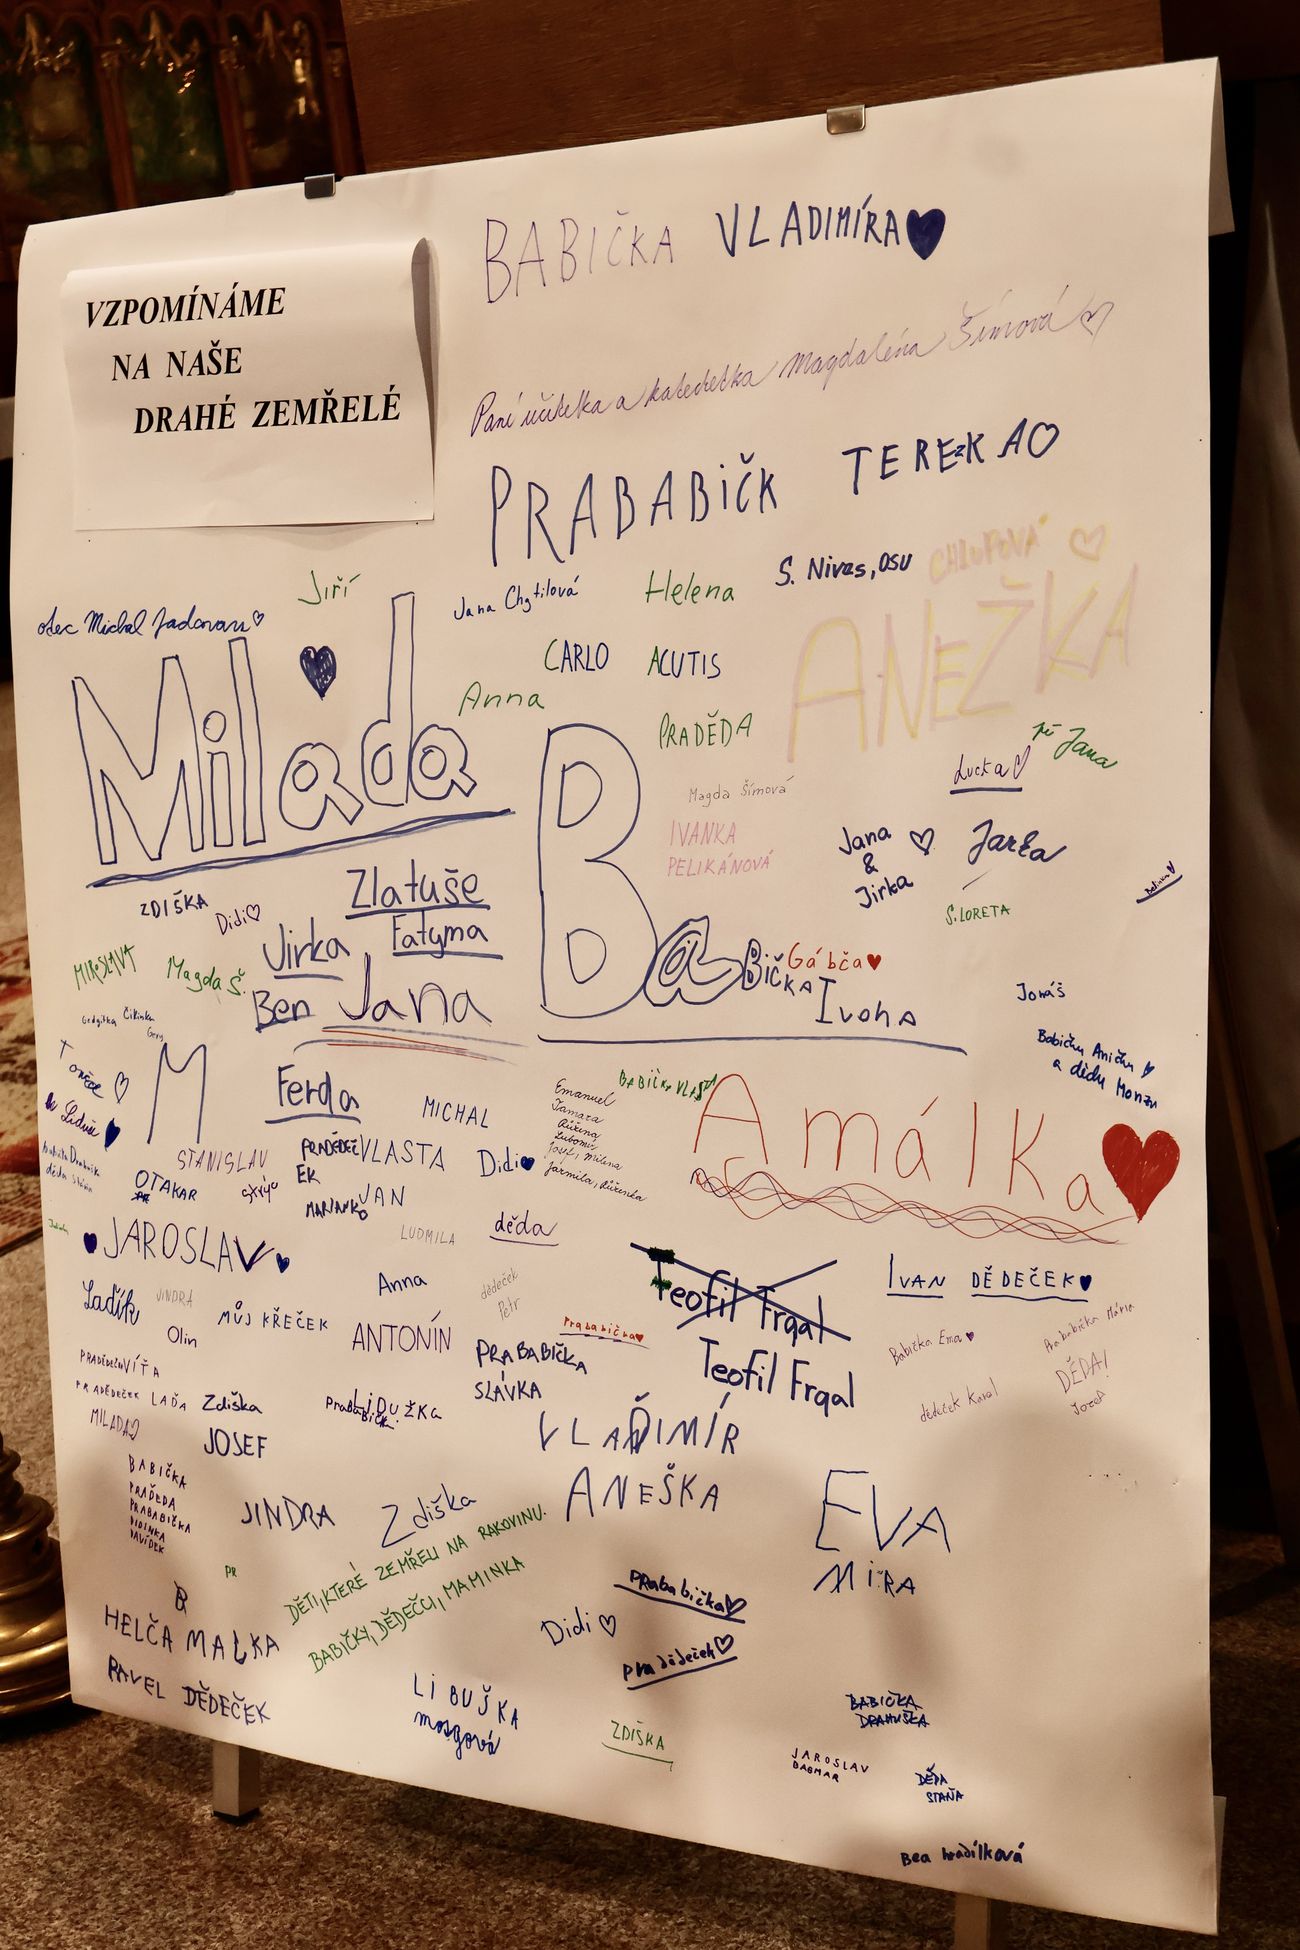 BABIČKA VLADIMÍRA
VZPOMÍNÁME
NA NAŠE
DRAHÉ ZEMŘELÉ
Paní učitelka a katechetka Magdaléna Šímová
PRABABIČK TEREZKA
S. Nivas, OSU
CHLUPOVÁ
Jiří
Jana Chytilová
Helena
otec Michal
CARLO ACUTIS
ANEŽKA
Milada
Anna
PRADĚDA
Jana
Lucka
Magda Šímová
IVANKA
PELIKÁNOVÁ
Jana
&
Jirka
Jarka
S. LORETA
ZDIŠKA
Didi
Zlatuše
Jirka
Fatyma
MIROSLAVA
Magda Š.
Ben
Jana
BaBIČKA
Gábča
Ivona
Jonáš
Babičku Aničku
a dědu
M
Ferda
MICHAL
Emanuel
Tamara
Růžena
Lubomír
Josef, Milena
Jarmila, Růženka
BABIČKA VLASTA
Amálka
STANISLAV
strýc
OTAKAR
PRADĚDEČ
EK
VLASTA
Didi
JAN
LUDMILA
děda
JAROSLAV
Anna
dědeček
Petr
Teofil Frgal
Teofil Frgal
IVAN DĚDEČEK
Laďík
JINDRA
Olin
MŮJ KŘEČEK
ANTONÍN
Prababička
PRABABIČKA
SLÁVKA
Babička Ema
Prababička Marie
DĚDA!
Josef
dědeček Karel
PRADĚDEČEK LAĎA
MILADA
Zdiška
JOSEF
LIDUŽKA
VLADIMÍR
ANEŠKA
BABIČKA
PRADĚDA
PRABABIČKA
DIDINKA
DAVÍDEK
JINDRA
Zdiška
EVA
MÍRA
PR
DĚTI, KTERÉ ZEMŘELI NA RAKOVINU.
BABIČKY, DĚDEČCI, MAMINKA
prababička
pradědeček
Didi
HELČA MALKA
PAVEL DĚDEČEK
LIBUŠKA
mosgová
ZDIŠKA
BABIČKA
DRAHUŠKA
JAROSLAV
DAGMAR
DĚDA
STAŇA
Bea hradílková